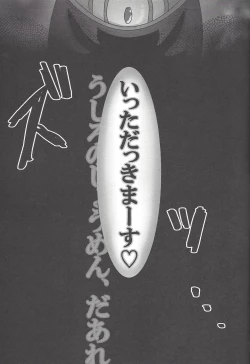 いっただっきまーす♡
うしろのしょうめん、だあれ
ズ